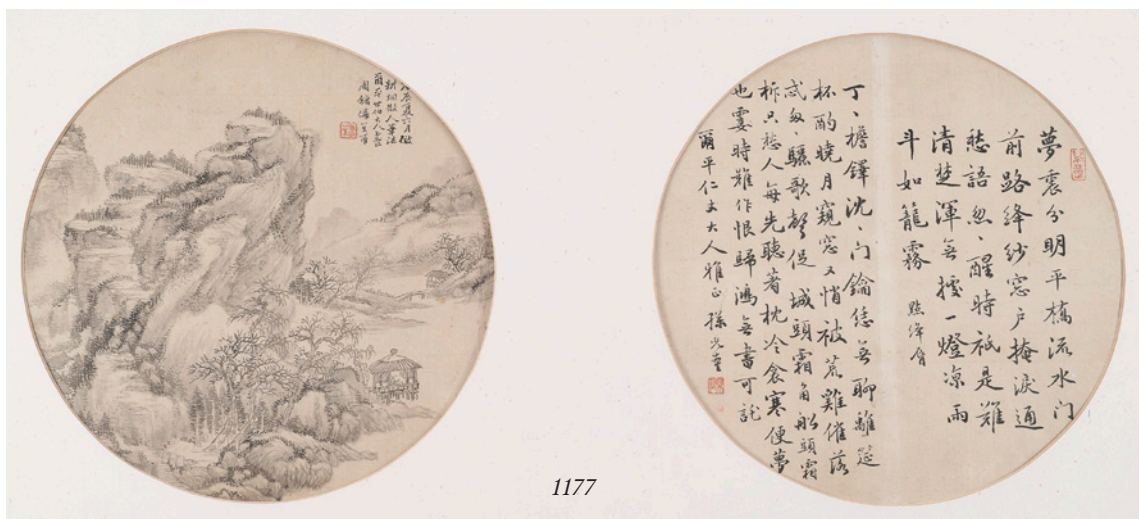 辰夏六月倣
耕烟散人筆法
爾平世伯大人
夢裏分明平橋流水门
前路絳紗窓户掩淚通
愁語忽〻醒時祇是難
清楚渾無據一燈凉雨
斗如籠霧 點絳唇
丁〻檐鐸沈〻门鑰恁無聊離筵
杯酌曉月窺窓又悄被荒雞催落
忒匆〻驪歌聲促城頭霜角船頭霜
柝只愁人每先聽著枕冷衾寒便夢
也霎時難作恨歸鴻無書可託
爾平仁丈大人雅正 孫光
1177